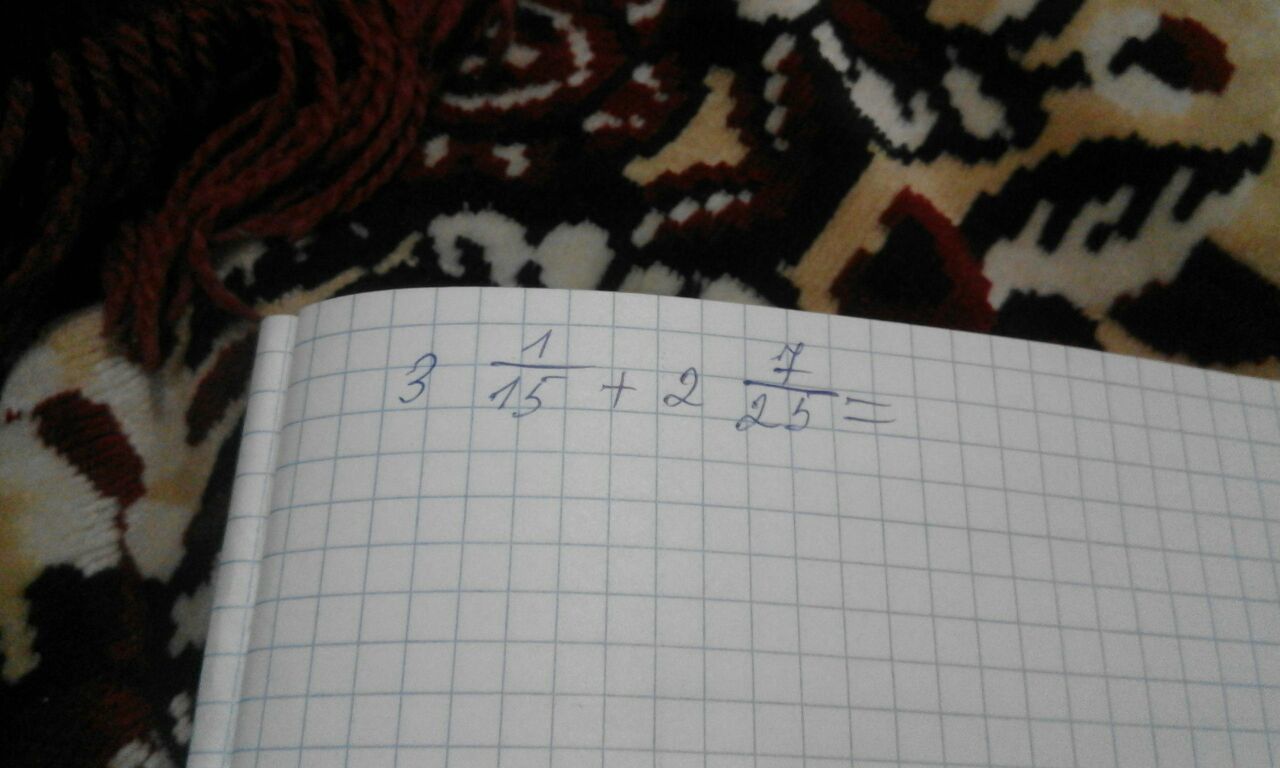 3 1/15 + 2 7/25 =